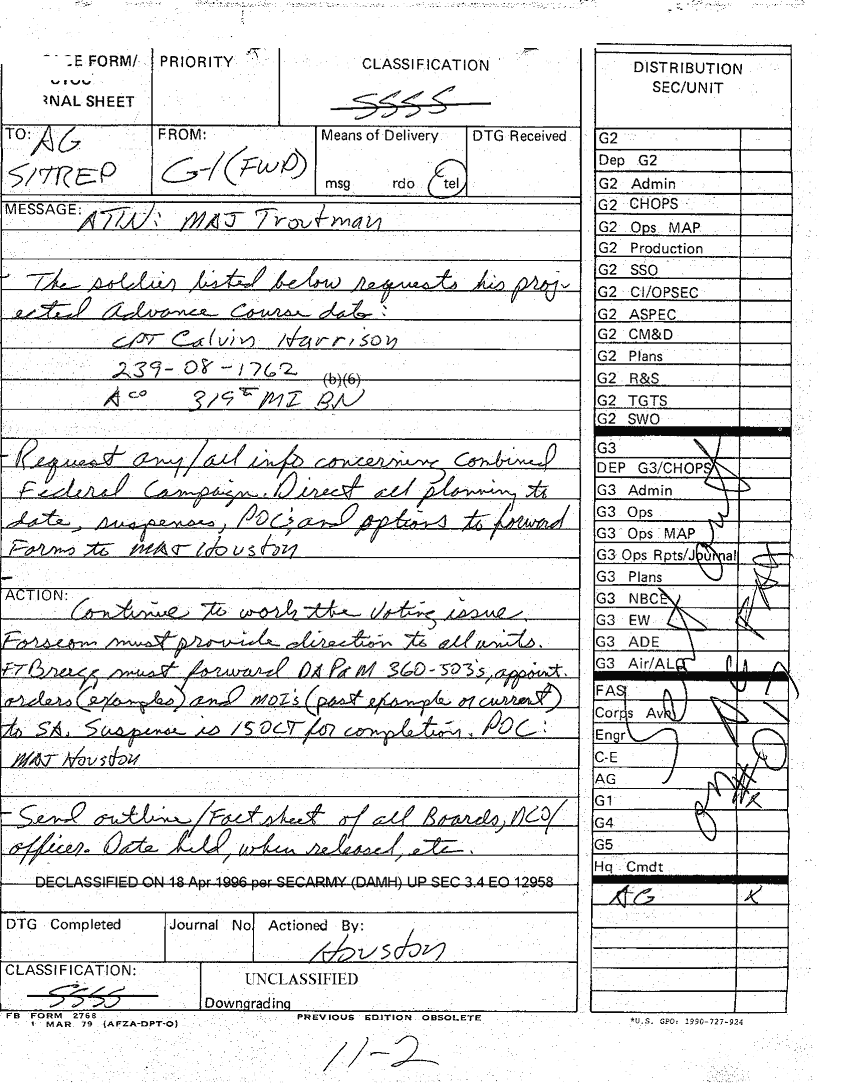 E FORM/
RNAL SHEET
PRIORITY
CLASSIFICATION
SSSS
TO: AG
SITREP
FROM:
G-1 (FWD)
Means of Delivery
msg rdo tel
DTG Received
MESSAGE: ATTN: MAJ Troutman
- The soldier listed below requests his proj-
ected Advance Course date:
CPT Calvin Harrison
239-08-1762
(b)(6)
A co 319th MI BN
- Request any/all info concerning Combined
Federal Campaign. Direct all planning to
date, suspenses, POC's, and options to forward
Forms to MAJ Houston
-
ACTION:
Continue to work the Voting issue.
Forscom must provide direction to all units.
FT Bragg must forward DA PAM 360-503's, appoint.
orders (examples) and MOI's (past example or current)
to SA. Suspense is 15 OCT for completion. POC:
MAJ Houston
- Send outline/Factsheet of all Boards, NCO/
officer. Date held, when released, etc.
DECLASSIFIED ON 18 Apr 1996 per SECARMY (DAMH) UP SEC 3.4 EO 12958
DTG Completed
Journal No.
Actioned By:
Houston
CLASSIFICATION:
SSSS
UNCLASSIFIED
Downgrading
FB FORM 2768
1 MAR 79 (AFZA-DPT-O)
PREVIOUS EDITION OBSOLETE
11-2
DISTRIBUTION
SEC/UNIT
G2
Dep G2
G2 Admin
G2 CHOPS
G2 Ops MAP
G2 Production
G2 SSO
G2 CI/OPSEC
G2 ASPEC
G2 CM&D
G2 Plans
G2 R&S
G2 TGTS
G2 SWO
G3
DEP G3/CHOPS
G3 Admin
G3 Ops
G3 Ops MAP
G3 Ops Rpts/Journal
G3 Plans
G3 NBCE
G3 EW
G3 ADE
G3 Air/ALO
FAS
Corps Avn
Engr
C-E
AG
G1
G4
G5
Hq Cmdt
AG X
*U.S. GPO: 1990-727-924